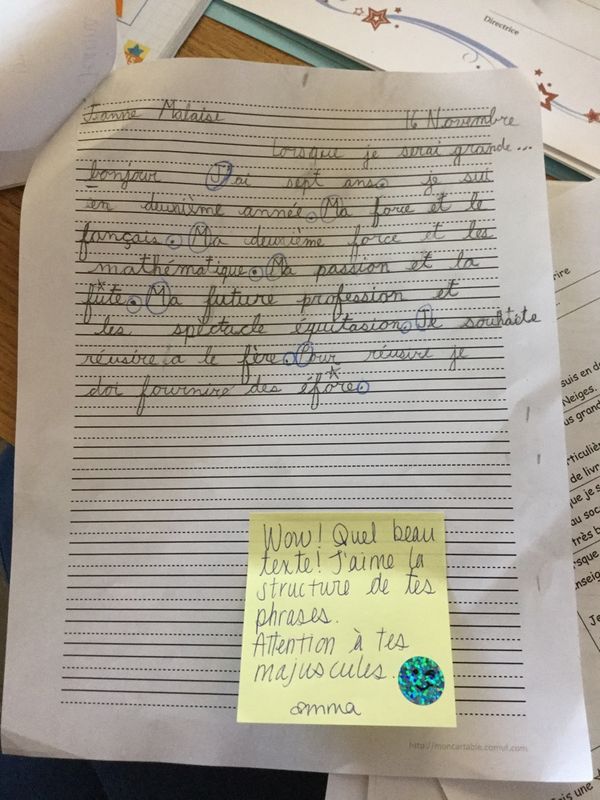 Directrice
Jeanne Malaise 16 Novembre
Lorsque je serai grande...
bonjour J'ai sept ans. je sui
en deuxième année. Ma force et le
français. Ma deuxième force et les
mathématique. Ma passion et la
fute. Ma future profession et
les spectacle équitasion. Je souhaete
réusire a le fère. Pour réusire je
doi fournire des éfore.
Wow! Quel beau
texte! J'aime la
structure de tes
phrases.
Attention à tes
majuscules.
emma
suis en de
Neiges.
us grand
rticulièr
de livr
que je s
au soc
très b
rsque
nseig
Je
http://moncartable.comuf.com